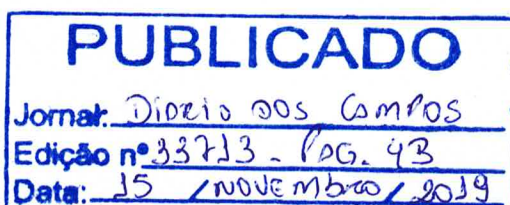 PUBLICADO
Jornal: Diário dos Campos
Edição nº 33713 - PÁG. 4B
Data: 15 / NOVEMBRO / 2019